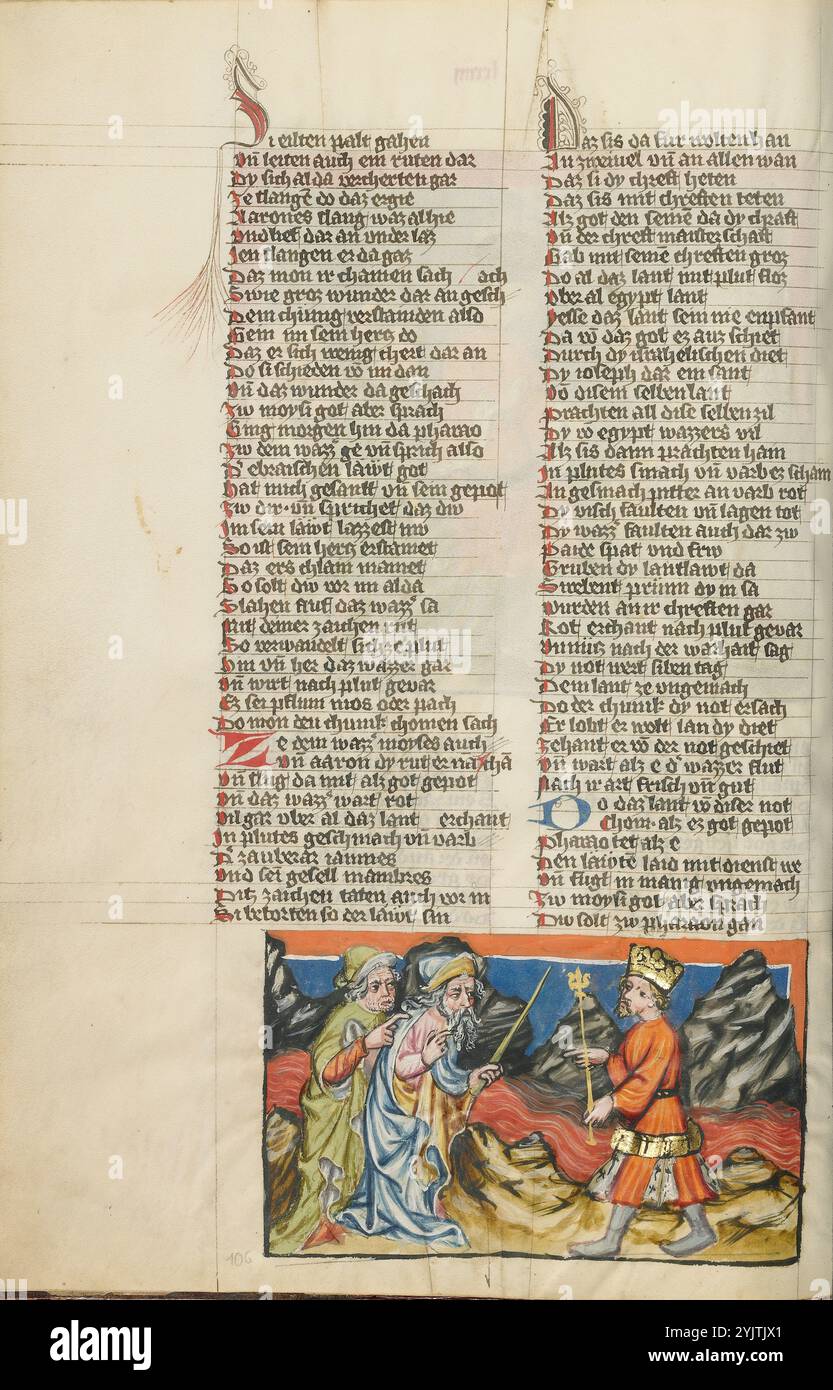 Si eilten palt gahen
vñ leiten auch ein ruten dar
Dy sich al da vercherten gar
Ze slangē do daz ergie
Aarones slang waz alhie
Vnd liez dar an vnder laz
Jen slangen er da gaz
Daz mon ir chainen sach
Swie groz wunder dar an gesch och
Dem chūnig verstainden also
Sein im sein hercz do
Daz er sich wenig chert dar an
Do si schieden vō im dan
Vñ daz wunder da geschach
Zw moysi got aber sprach
Ging morgen hin da pharao
Zw dem wazz ge vñ sprich also
D ebraischen läwt got
hat mich gesant vñ sein gepot
Zw dir vñ sprichet daz dw
Im sein läwt lazzest nw
So ist sein hercz erstainet
Daz ers chlain mainet
So solt dw vor im al da
Slahen auf daz wazz sa
Mit deiner zaichen rut
So verwandelt sich ze plut
Hin vñ her daz wazzer gar
Vñ wirt nach plut gevar
Ez sei pflum mos oder pach
Do mon den chunik chomen sach
Ze dem wazz moyses auch
Vñ aaron dy rut er nach
Vñ slug da mit alz got gepot
Vñ daz wazz wart rot
Vil gar vber al daz lant erchant
In plutes geschmach vñ varb
D zauberär iannes
Vnd sei gesell mambres
Ditz zaichen taten auch vor in
Si betorten so der läwt sin
Daz sis da fur wolten han
An zweiuel vñ an allen wan
Daz si dy chreft heten
Daz sis mit chreften teten
Alz got den seinē da dy chraft
Vñ der chreft maisterschaft
Gab mit seinē chreften groz
Do al daz lant mit plut floz
Vber al egypt lant
Yesse daz lant sein nie enpfant
Da vō daz got ez auz schiet
Durch dy israhelischen diet
Dy ioseph dar ein sant
Vō disem selben lant
Prachten all dise selben zil
Dy vō egypt wazzers vil
Alz sis dann prachten hain
In plutes smach vñ varb ez schain
An gesmach pitter an varb rot
Dy visch faulten vñ lagen tot
Dy wazz faulten auch dar zw
Paide spat vnd frw
Gruben dy lantläwt da
Swelbent prünn dy in sa
Wurden an ir chreften gar
Rot erchant nach plut gevar
Vnnutz nach der warhait sag
Dy not wert siben tag
Dem lant ze vngemach
Do der chunik dy not ersach
Er lobt er wolt lan dy diet
Zehant er vō der not geschiet
Vñ wart alz e d wazzer flut
Nach ir art frisch vñ gut
Do daz lant vō diser not
Chom alz ez got gepot
Pharao tet alz e
Den läwten laid mit dienst we
Vñ flugt in manig vngemach
Zw moysi got aber sprach
Dw solt zw pharaon gan
106
alamy
Image ID: 2YJTJX1
www.alamy.com